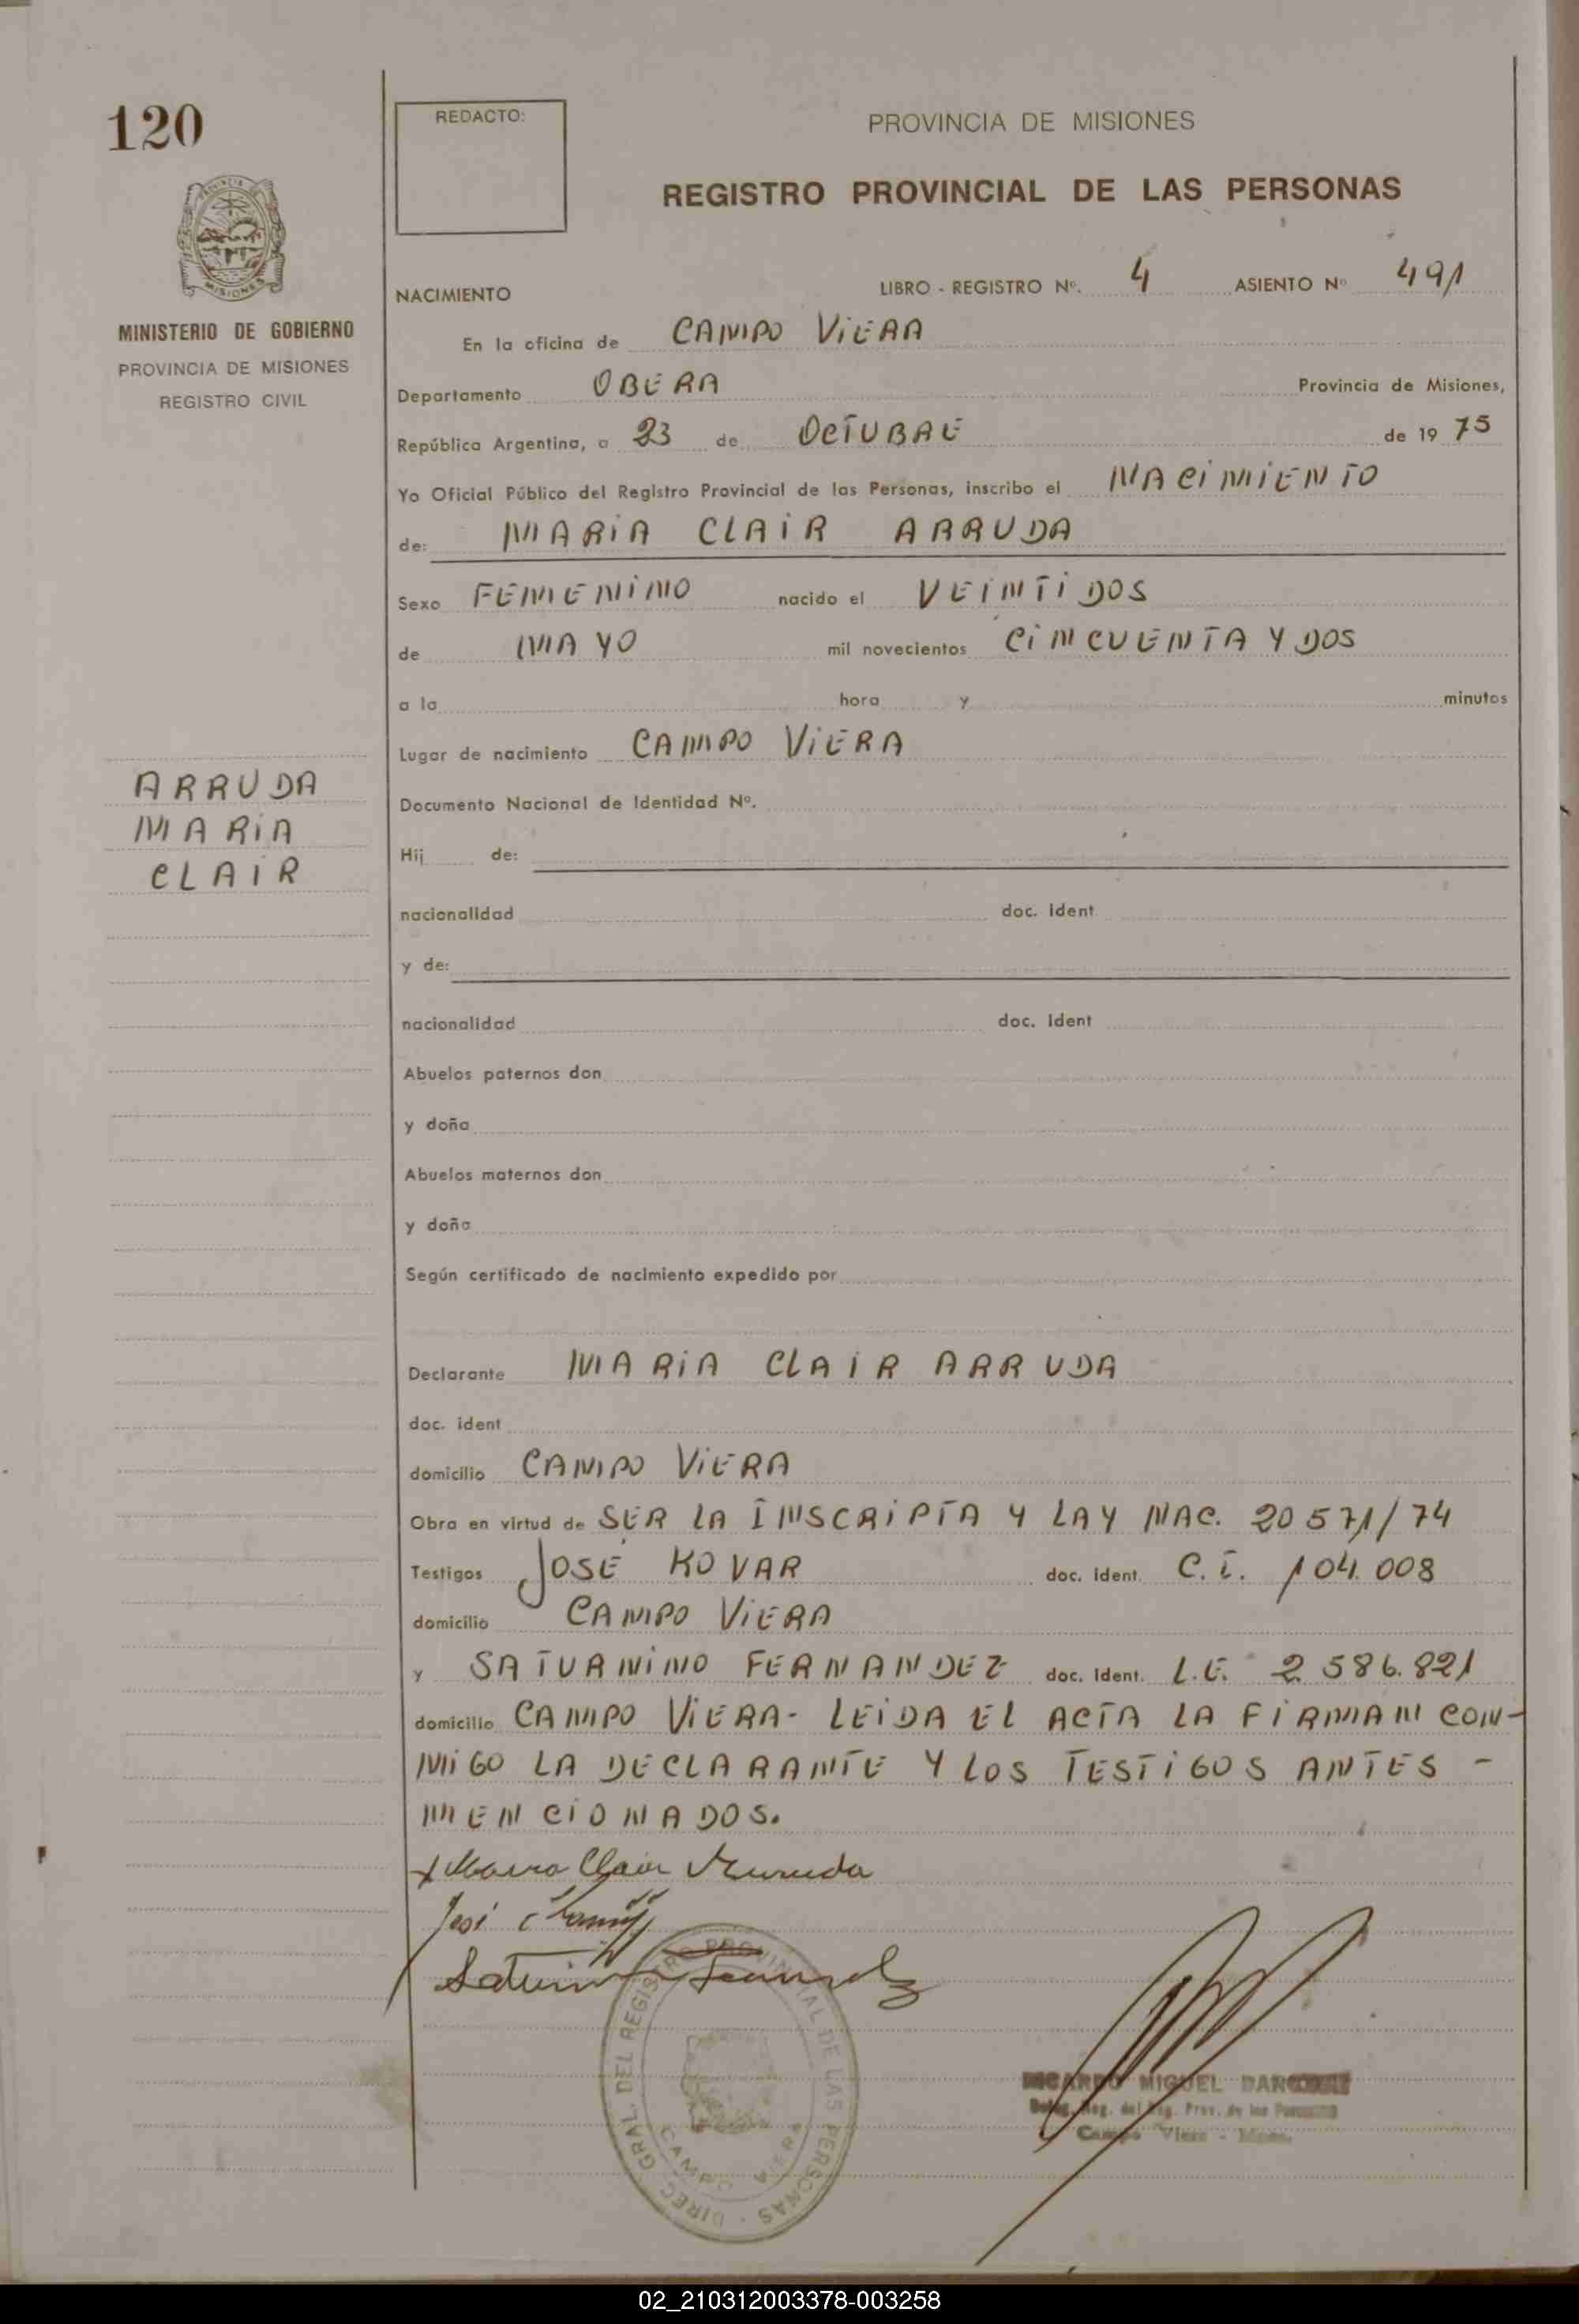 120
REDACTO:
PROVINCIA DE MISIONES
REGISTRO PROVINCIAL DE LAS PERSONAS
MISIONES
MINISTERIO DE GOBIERNO
PROVINCIA DE MISIONES
REGISTRO CIVIL
NACIMIENTO LIBRO - REGISTRO Nº. 4 ASIENTO Nº 491
En la oficina de CAMPO VIERA
Departamento OBERA Provincia de Misiones,
República Argentina, a 23 de OCTUBRE de 19 75
Yo Oficial Público del Registro Provincial de las Personas, inscribo el NACIMIENTO
de: MARIA CLAIR ARRUDA
Sexo FEMENINO nacido el VEINTIDOS
de MAYO mil novecientos CINCUENTA Y DOS
a la hora y minutos
Lugar de nacimiento CAMPO VIERA
ARRUDA
MARIA
CLAIR
Documento Nacional de Identidad Nº.
Hij de:
nacionalidad doc. ident
y de:
nacionalidad doc. ident
Abuelos paternos don
y doña
Abuelos maternos don
y doña
Según certificado de nacimiento expedido por
Declarante MARIA CLAIR ARRUDA
doc. ident
domicilio CAMPO VIERA
Obra en virtud de SER LA INSCRIPTA Y LAY NAC. 20571/74
Testigos JOSE KOVAR doc. ident. C.I. 104.008
domicilio CAMPO VIERA
y SATURNINO FERNANDEZ doc. ident. L.E. 2.586.821
domicilio CAMPO VIERA- LEIDA EL ACTA LA FIRMAN CON-
MIGO LA DECLARANTE Y LOS TESTIGOS ANTES -
MENCIONADOS.
x Maria Clair Arruda
José
DIREC. GRAL. DEL REGISTRO PROVINCIAL DE LAS PERSONAS
CAMPO VIERA
RICARDO MIGUEL
Reg. Prov. de las
Campo Viera
02_210312003378-003258